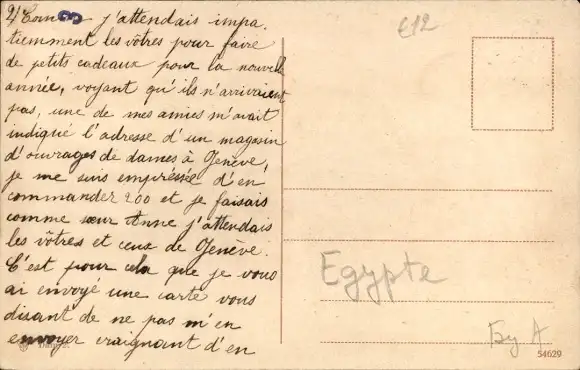 2) Comme j'attendais impa.
tiemment les vôtres pour faire
de petits cadeaux pour la nouvelle
année, voyant qu'ils n'arrivaient
pas, une de mes amies m'avait
indiqué l'adresse d'un magasin
d'ouvrages de dames à Genève,
je me suis empressée d'en
commander 200 et je faisais
comme sœur Anne j'attendais
les vôtres et ceux de Genève.
C'est pour cela que je vous
ai envoyé une carte vous
disant de ne pas m'en
envoyer craignant d'en
£12
Egypte
Бу А
54629